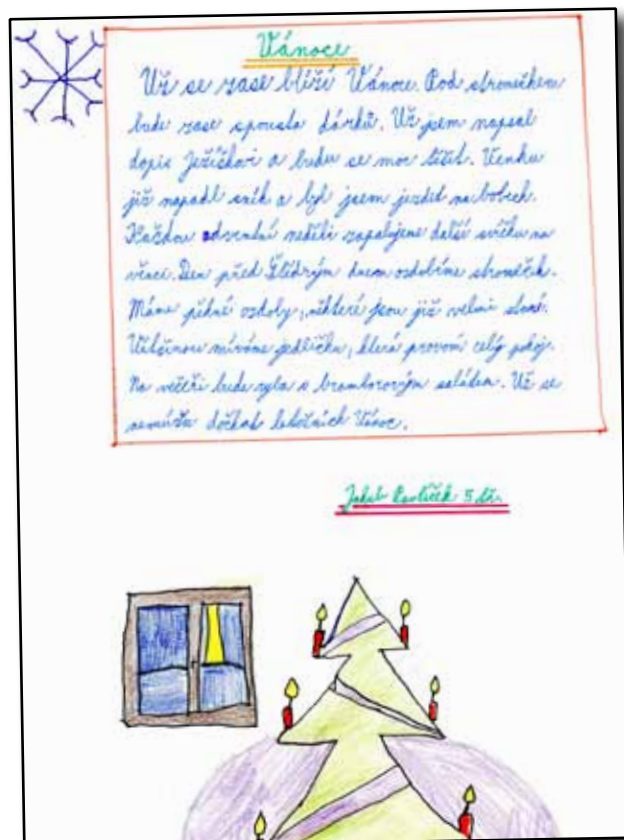 Vánoce
Už se zase blíží Vánoce. Pod stromečkem
bude zase spousta dárků. Už jsem napsal
dopis Ježíškovi a budu se moc těšit. Venku
již napadl sníh a byl jsem jezdit na bobech.
Každou adventní neděli zapalujeme další svíčku na
věnci. Den před Štědrým dnem ozdobíme stromeček.
Máme pěkné ozdoby, některé jsou již velmi staré.
Většinou míváme jedličku, která provoní celý pokoj.
Na večeři bude ryba s bramborovým salátem. Už se
nemůžu dočkat letošních Vánoc.
Jakub 5. tř.